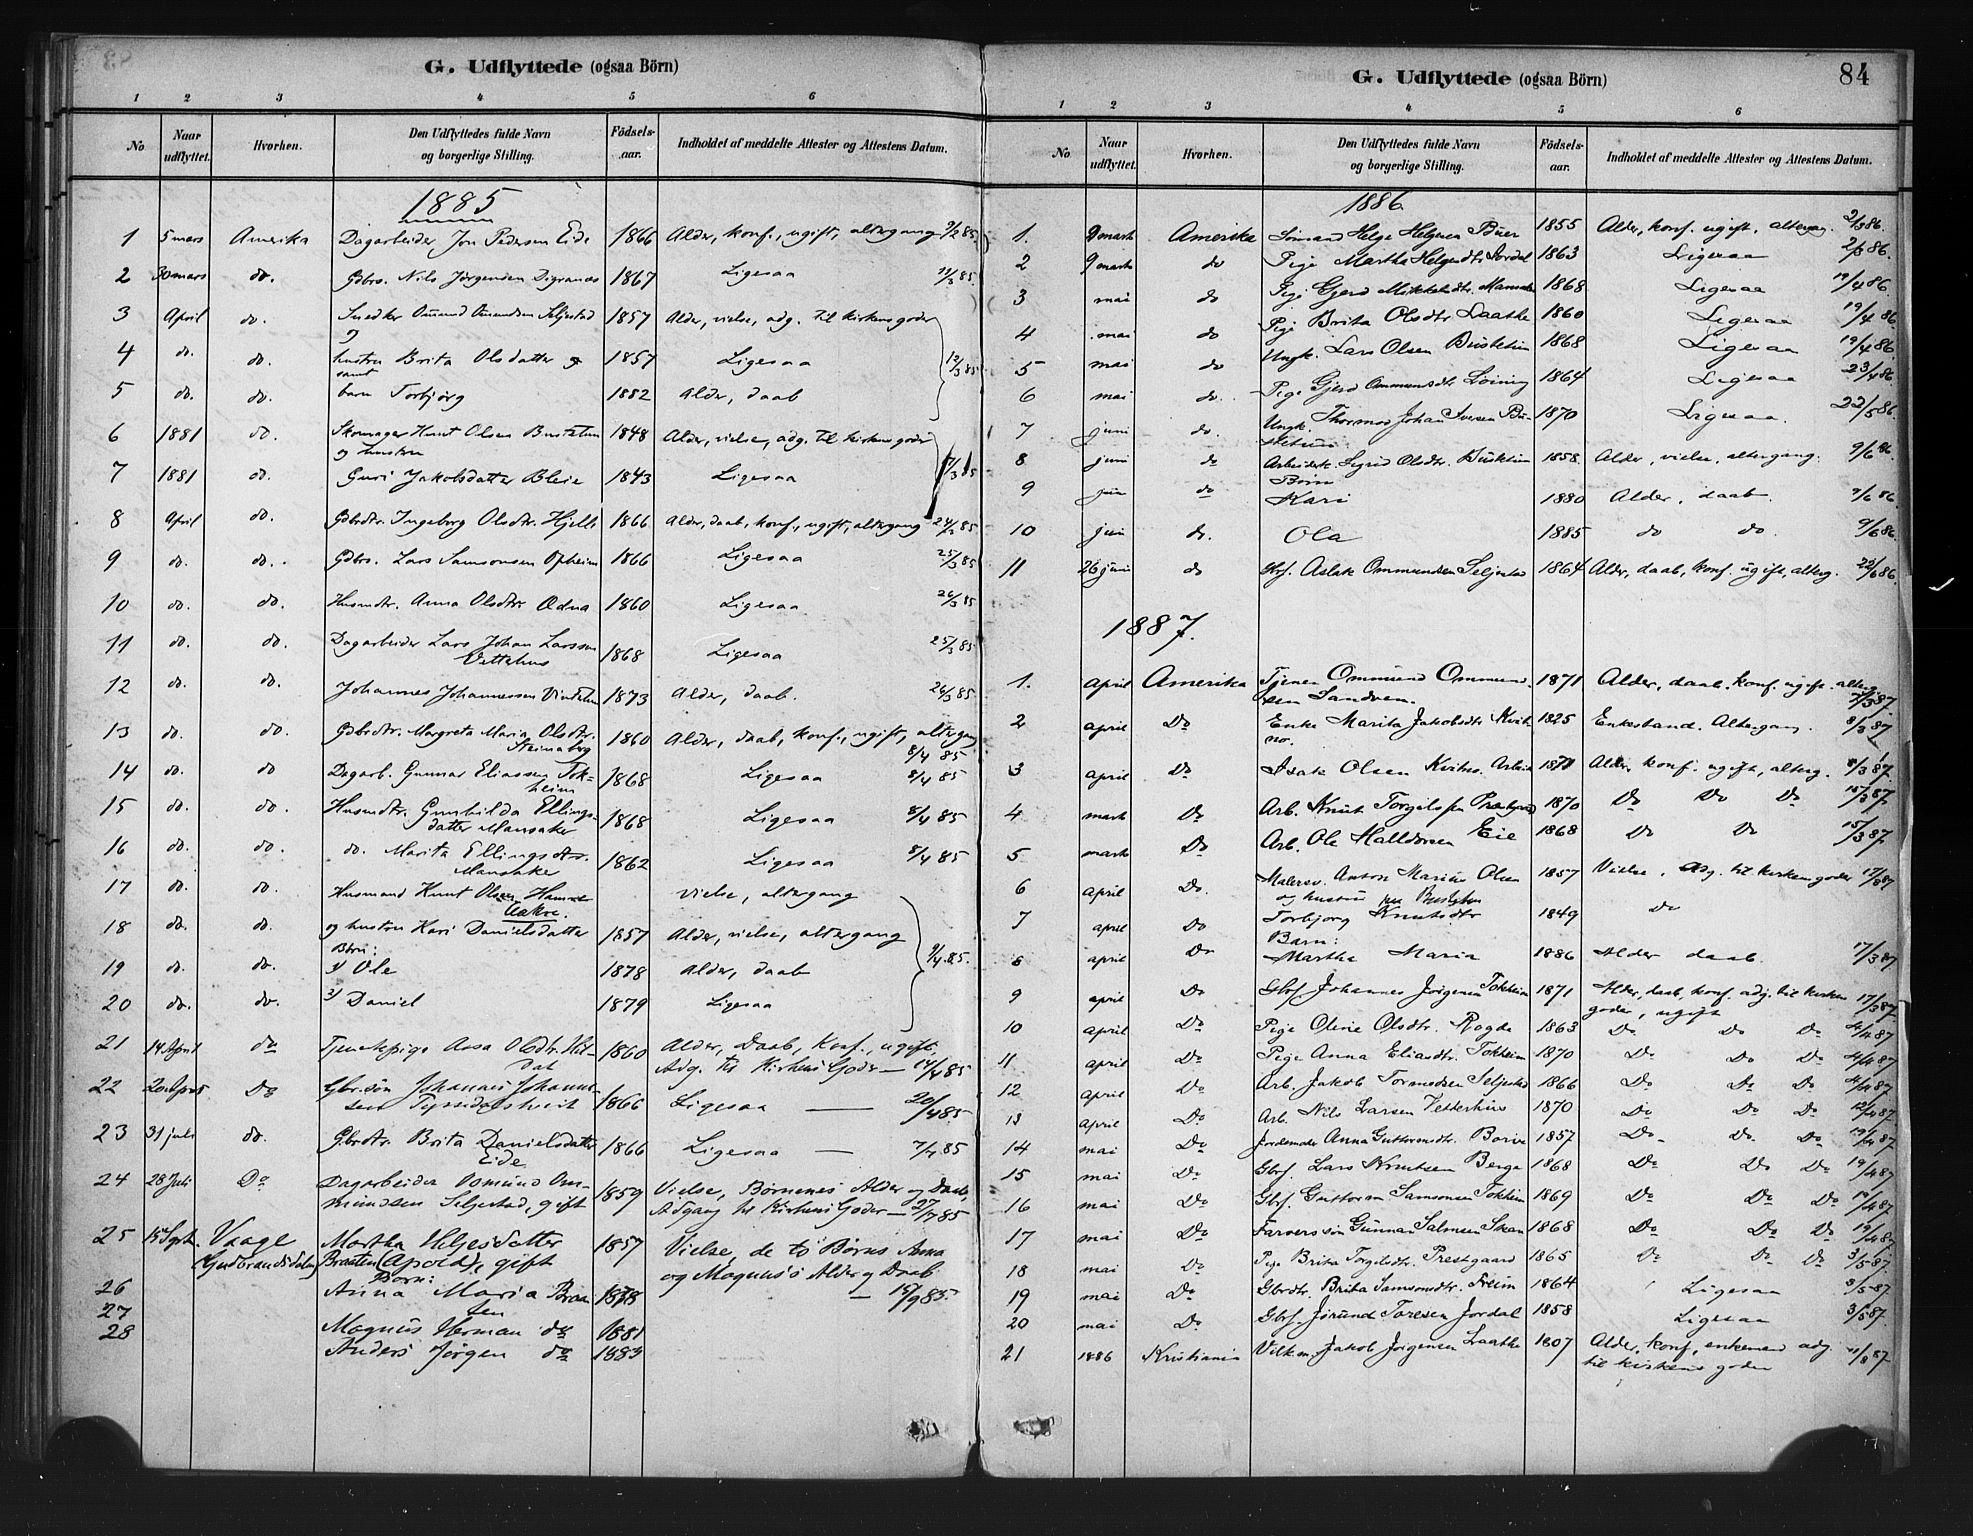 G. Udflyttede (ogsaa Börn)
1 2 3 4 5 6
No Naar udflyttet. Hvorhen. Den Udflyttedes fulde Navn og borgerlige Stilling. Födsels-aar. Indholdet af meddelte Attester og Attestens Datum.
1885
1 5 mars Amerika Dagarbeider Jon Pedersen Eide 1866 Alder, konf., ugift, altergang 85.
2 30 mars do. Gdbrs. Nils Jørgensen Digranes 1867 Ligesaa 11/3 85.
3 April do. Snedker Omund Omundsen Seljestad 1857 Alder, vielse, adg. til kirkens goder
og
4 do. do. hustru Brita Olsdatter 1857 Ligesaa 12/3 85
samt
5 do. do. barn Torbjørg 1882 Alder, daab
6 1881 do. Skomager Knut Olsen Bustetun 1848 Alder, vielse, adg. til kirkens goder
og hustru
7 1881 do. Guri Jakobsdatter Bleie 1843 Ligesaa
8 April do. Gdbrdtr. Ingeborg Olsdtr. Hjelle 1866 Alder, daab, konf., ugift, altergang 24/3 85
9 do. do. Gdbrs. Lars Samsonsen Opheim 1866 Ligesaa 25/3 85
10 do. do. Husmdtr. Anna Olsdtr Odna 1860 Ligesaa 26/3 85
11 do. do. Dagarbeider Lars Johan Larssen 1868 Ligesaa 25/3 85
Vettehus
12 do. do. Johannes Johannessen 1873 Alder, daab. 26/3 85
13 do. do. Gdbrdtr. Margreta Maria Olsdtr. 1860 Alder, daab, konf., ugift, altergang
Steinaberg 8/4 85
14 do. do Dagarb. Gunnar Eliassen Tok- 1868 Ligesaa 8/4 85
heim
15 do. do. Husmdtr. Gunhilda Ellings- 1868 Ligesaa 8/4 85
datter Mansaker
16 do. do. do. Marita Ellingsdtr. 1862 Ligesaa 8/4 85
Mansaker
17 do. do. Husmand Knut Olsen vielse, altergang
Aakre.
18 do. do. og hustru Kari Danielsdatter 1857 Alder, vielse, altergang 9/4 85.
Börn:
19 do. do. 1) Ole 1878 Alder, daab
20 do. do. 2) Daniel 1879 Ligesaa
21 14 April do Tjenestepige Aasa Olsdtr. Hil- 1860 Alder, Daab, Konf., ugift,
dal Adg. til Kirkens Goder — 14/4 85
22 20 April Do Gbr.søn Johannes Johannes- 1866 Ligesaa — 20/4 85.
sen Tyssedalstveit
23 31 juli do. Gbrdtr. Brita Danielsdatter 1866 Ligesaa — 85
Eide
24 28 Juli Do Dagarbeider Osmund Om- 1859 Vielse, Børnenes Alder og Daab,
mundsen Seljestad, gift Adgang til Kirkens Goder — 27/7 85
25 15 Sept. Vaage Martha Heljesdatter 1857 Vielse, de to Børns Anna
(Gudbrandsdalen) Braaten (Apold), gift og Magnus's Alder og Daab
Børn: — 15/9 85.
26 Anna Maria Braa- 1878
27 ten
28 Magnus Herman do 1881
Anders Jørgen do 1883
G. Udflyttede (ogsaa Börn) 84
1 2 3 4 5 6
No Naar udflyttet. Hvorhen. Den Udflyttedes fulde Navn og borgerlige Stilling. Födsels-aar. Indholdet af meddelte Attester og Attestens Datum.
1886
1. 9 marts Amerika Helge Helgesen Buer 1855 Alder, konf. ugift, altergang. 2/3 86.
2 9 marts do Pige Martha Helgesdtr. Jordal 1863 Ligesaa 2/3 86.
3 mai do Pige Gjerd Mikkelsdtr. Mannsaker 1868 Ligesaa 19/4 86.
4 mai do Pige Brita Olsdtr Laathe 1860 Ligesaa 19/4 86
5 mai do Ungk. Lars Olsen Bustetun 1868 Ligesaa 19/4 86.
6 mai do. Pige Gjerd Ommundsdtr. Løining 1864 Ligesaa 23/4 86.
7 juni do. Ungk. Thormod Johan Iversen Bu- 1870 Ligesaa. 22/5 86.
stetun
8 juni do Arbeiderk. Sigrid Olsdtr. Bustetun 1858. Alder, vielse, altergang. 9/6 86.
Børn
9 juni do Kari 1880 Alder, daab. 9/6 86.
10 juni do. Ola 1885 do do. 9/6 86.
11 26 juni do Gbrf. Aslak Ommundsen Seljestad 1864 Alder, daab, konf. ugift, alterg. 22/6 86.
1887.
1. april Amerika Tjener Ommund Ommund- 1871 Alder, daab, konf. ugift, alterg.
sen Sandven. 3 87.
2 april Do Enke Marita Jakobsdtr Kvit- 1825 Enkestand. Altergang. 8/3 87
no.
3 april Do Isak Olsen Kvitno. Arbeider 1871 Alder, konf. ugift, alterg. 8/3 87.
4 marts Do Arb. Knut Torgilssen Præstgaard 1870 Do Do Do 15/3 87
5 marts Do Arb. Ole Halldorsen Eie 1868 Do Do 15/3 87.
6 april Do. Malersv. Anton Marius Olsen 1857 Vielse. Adg. til kirkens goder 17/3 87
og hustru Bustetun
7 april Do Torbjørg Knutsdtr 1849 Do
Barn:
8 april Do Martha Maria 1886 Alder daab. 17/3 87
9 april Do Gbrf. Johannes Jørgensen Tokheim 1871 Alder, daab, konf. adg. til kirkens
goder, ugift 17/3 87.
10 april Do Pige Oline Olsdtr. Ragde 1863 Do Do Do 4/4 87
11 april Do Pige Anna Eliasdtr. Tokheim 1870 Do Do Do 4/4 87
12 april Do Arb. Jakob Tormodsen Seljestad 1866 Do Do Do 4/4 87
13 april Do. Arb. Nils Larsen Vetterhus 1870 Do Do Do 12/4 87
14 mai Do Jordemoder Anna Guttormsdtr. Borve 1857 Do Do Do 19/4 87
15 mai Do Gbrf. Lars Knutsen Berge 1868 Do Do Do 19/4 87
16 mai Do Gbrf. Guttorm Samsonsen Tokheim 1869 Do Do Do 19/4 87
17 mai Do Farverssøn Gunnar Salmer 1868 Do Do Do 19/4 87
18 mai Do Pige Brita Torgilsdtr. Præstgaard 1865 Do Do Do 3/5 87.
19 mai Do Gbrdtr. Brita Samsonsdtr. Freim 1864 Ligesaa 3/5 87
20 mai Do. Gbrf. Jorund Toresen Jordal 1858 Ligesaa 3/5 87.
21 1886 Kristiania Jakob Jørgensen Laathe 1807 Alder, konf, enkemand adg.
til kirkens goder 11/8 87